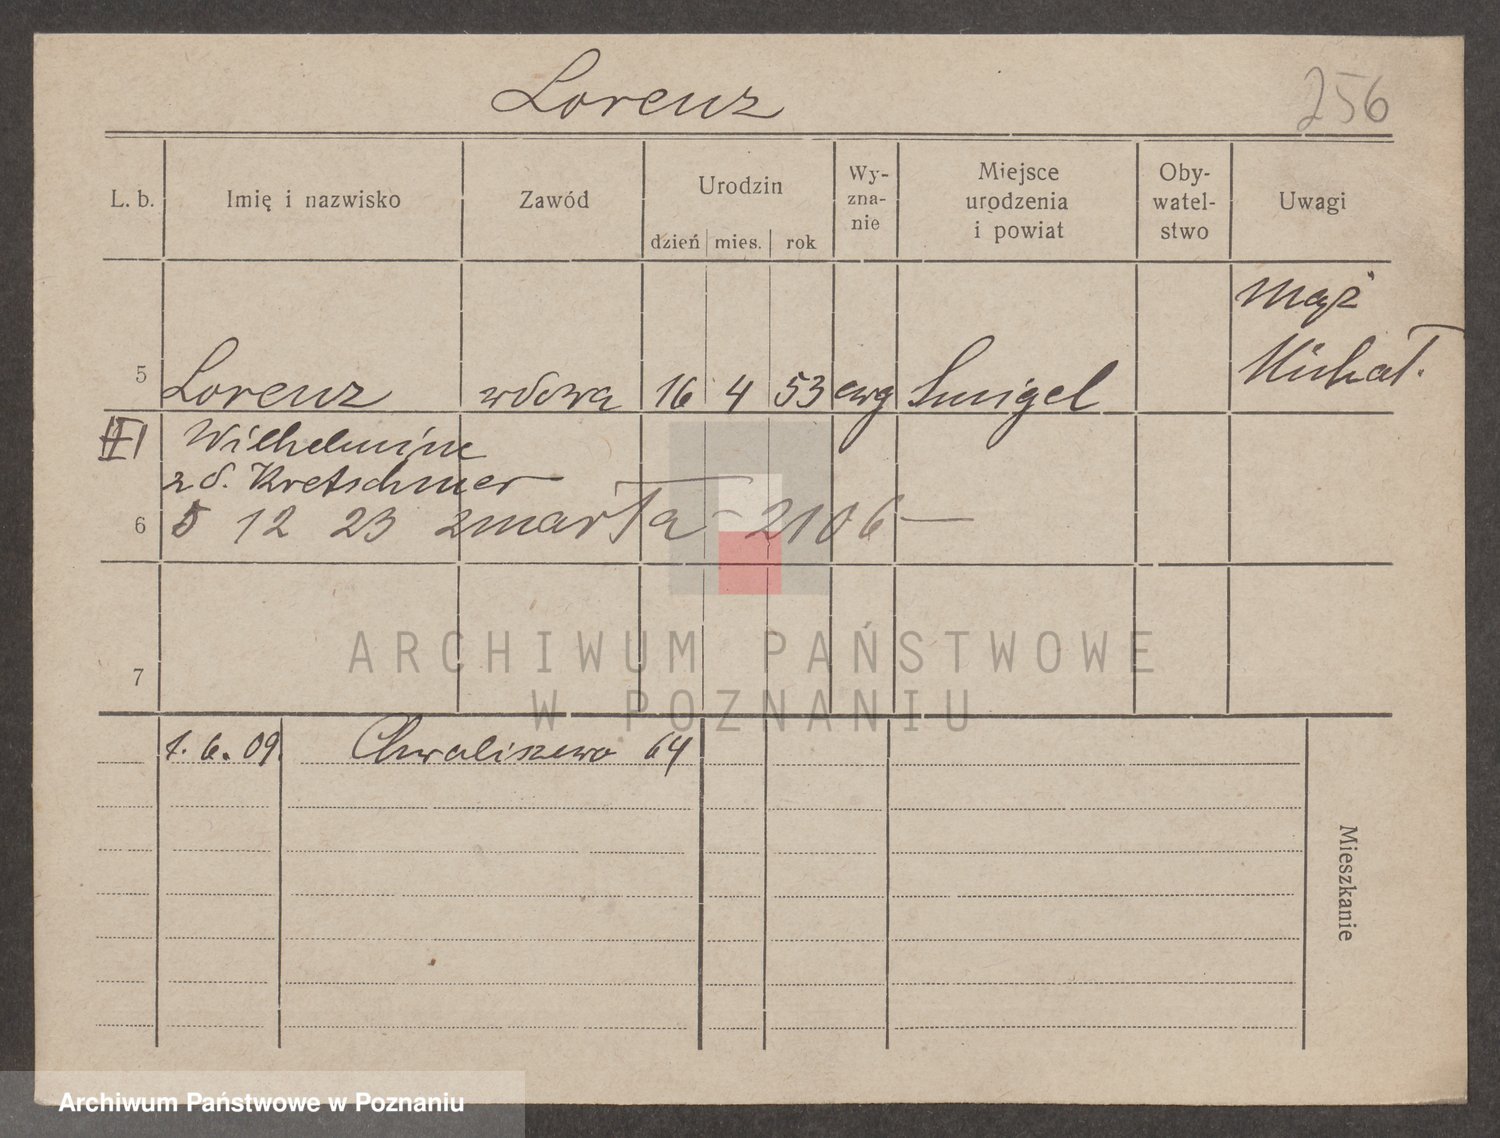 Lorenz
256
L. b.
Imię i nazwisko
Zawód
Urodzin
dzień mies. rok
Wy-
zna-
nie
Miejsce
urodzenia
i powiat
Oby-
watel-
stwo
Uwagi
mąż
Michał.
5 Lorenz wdowa 16 4 53 ewg Smigel
Wilhelmine
z d. Kretschmer
6 5 12 23 zmarła - 2106 —
7
ARCHIWUM PAŃSTWOWE
W POZNANIU
1. 6. 09. Chwaliszewo 64
Mieszkanie
Archiwum Państwowe w Poznaniu